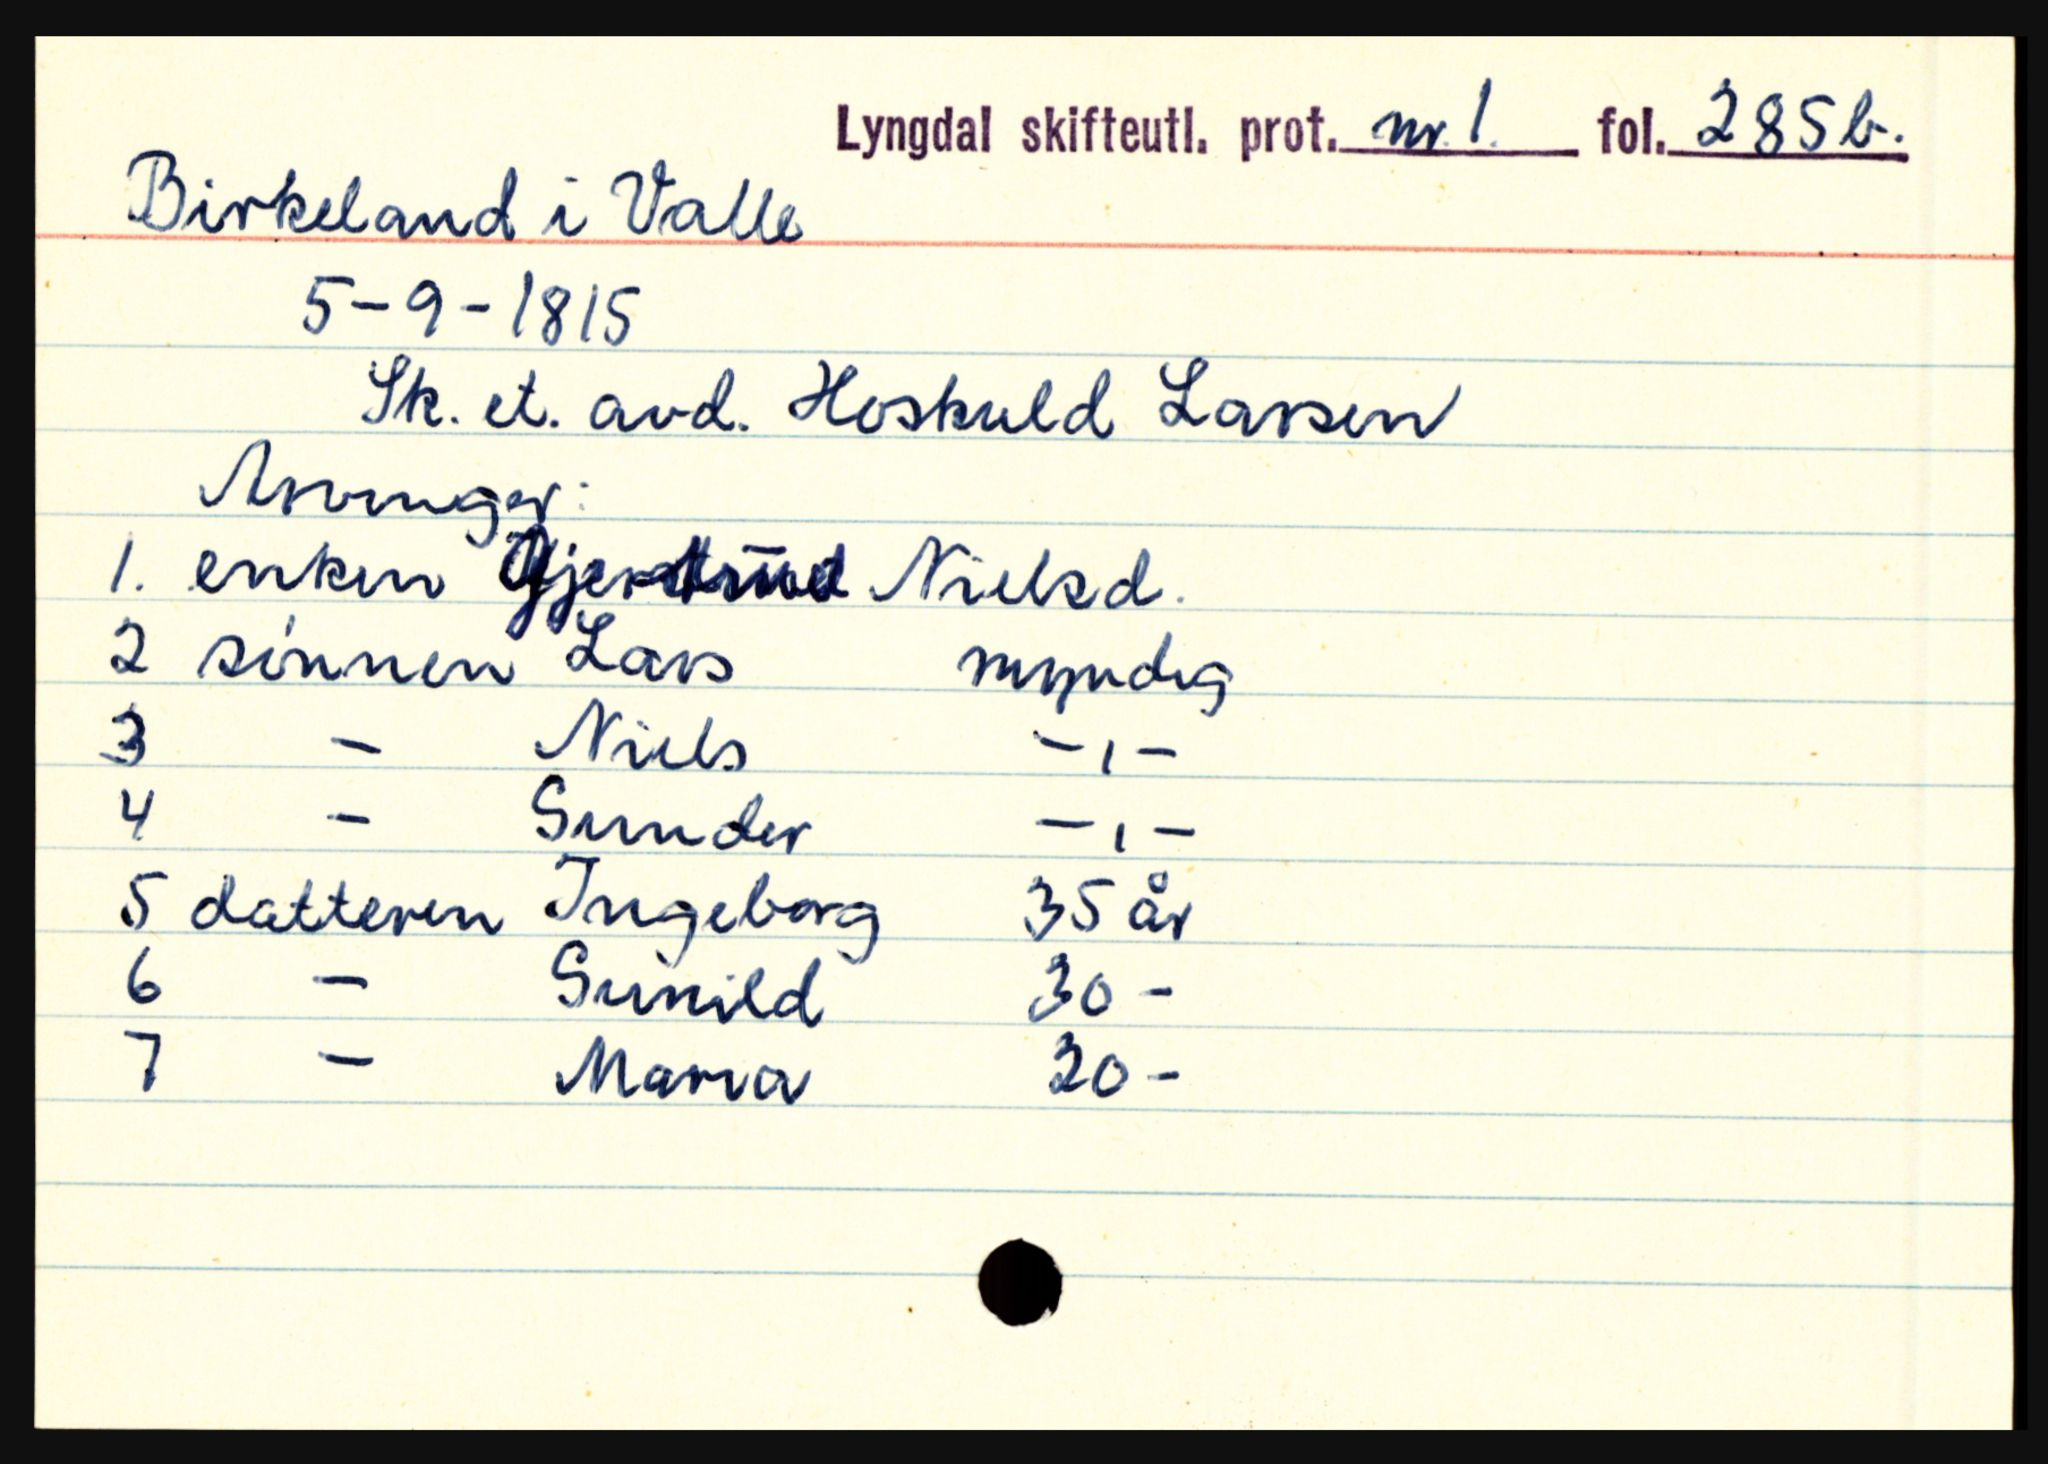 Lyngdal skifteutl. prot. nr. 1. fol. 285 b.
Birkeland i Valle
5-9-1815
Sk. et. avd. Hoskuld Larsen
Arvinger:
1. enken Gjertrud Nielsd.
2 sønnen Lars myndig
3 - Niels -,-
4 - Gunder -,-
5 datteren Ingeborg 35 år
6 - Gunild 30 -
7 - Maria 20 -